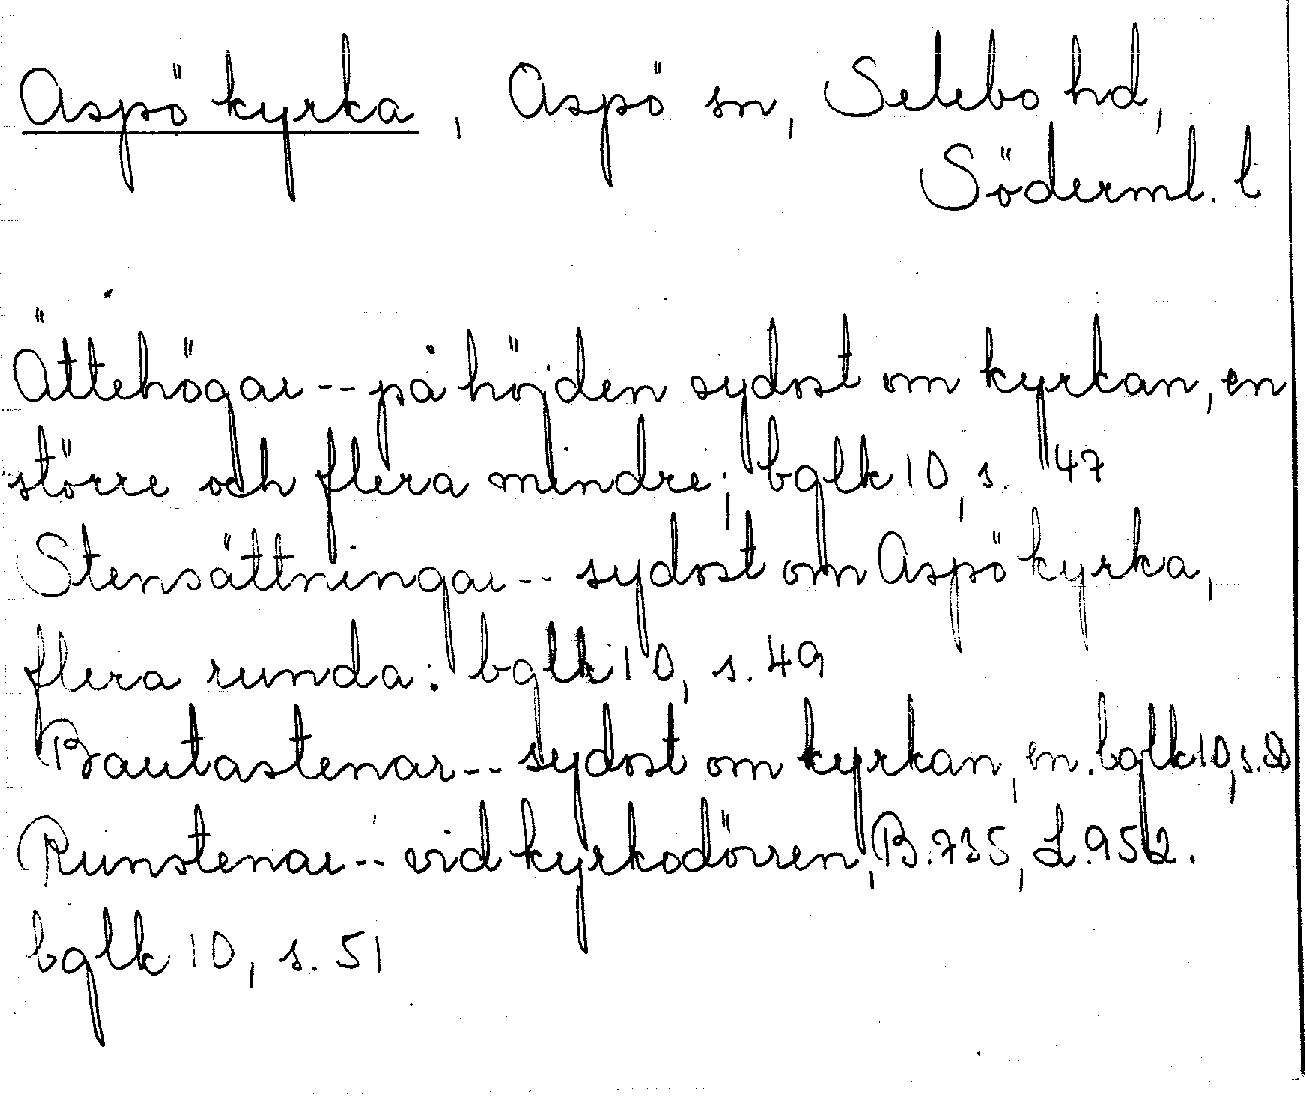 Aspö kyrka, Aspö sn, Selebo hd,
Söderml. l
Ättehögar -- på höjden sydost om kyrkan, en
större och flera mindre; bglk 10, s. 47
Stensättningar -- sydost om Aspö kyrka,
flera runda: bglk 10, s. 49
Bautastenar -- sydost om kyrkan, en. bglk 10, s.
Runstenar -- vid kyrkodörren, B.735, L.952.
bglk 10, s. 51